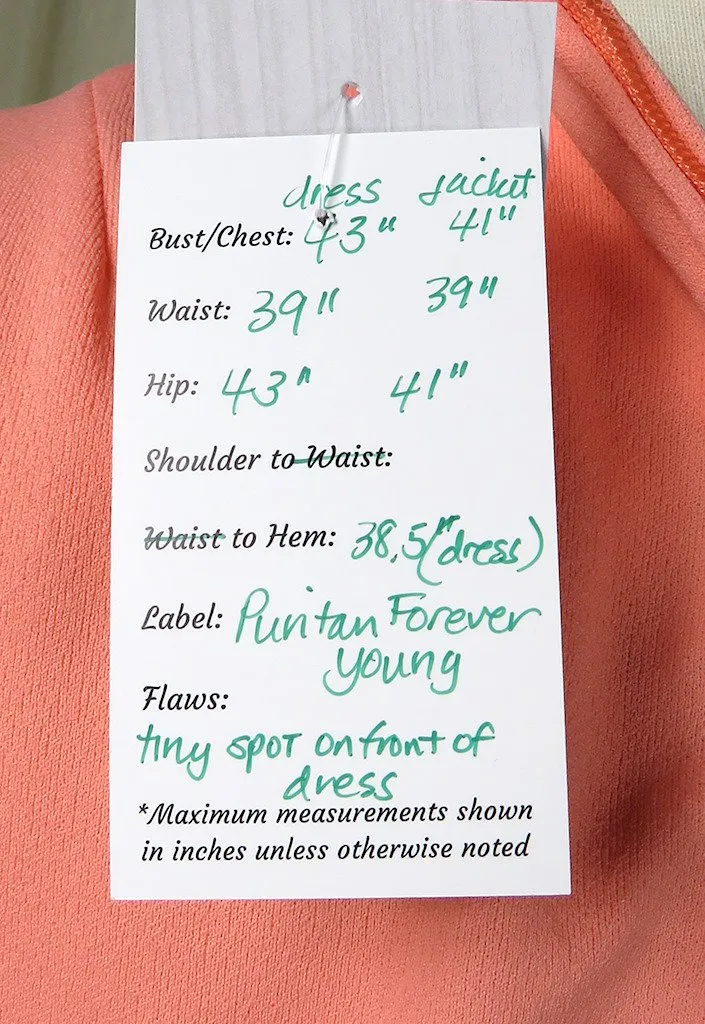 dress jacket
Bust/Chest: 43" 41"
Waist: 39" 39"
Hip: 43" 41"
Shoulder to Waist:
Waist to Hem: 38.5" (dress)
Label: Puritan Forever
Young
Flaws:
tiny spot on front of
dress
*Maximum measurements shown
in inches unless otherwise noted